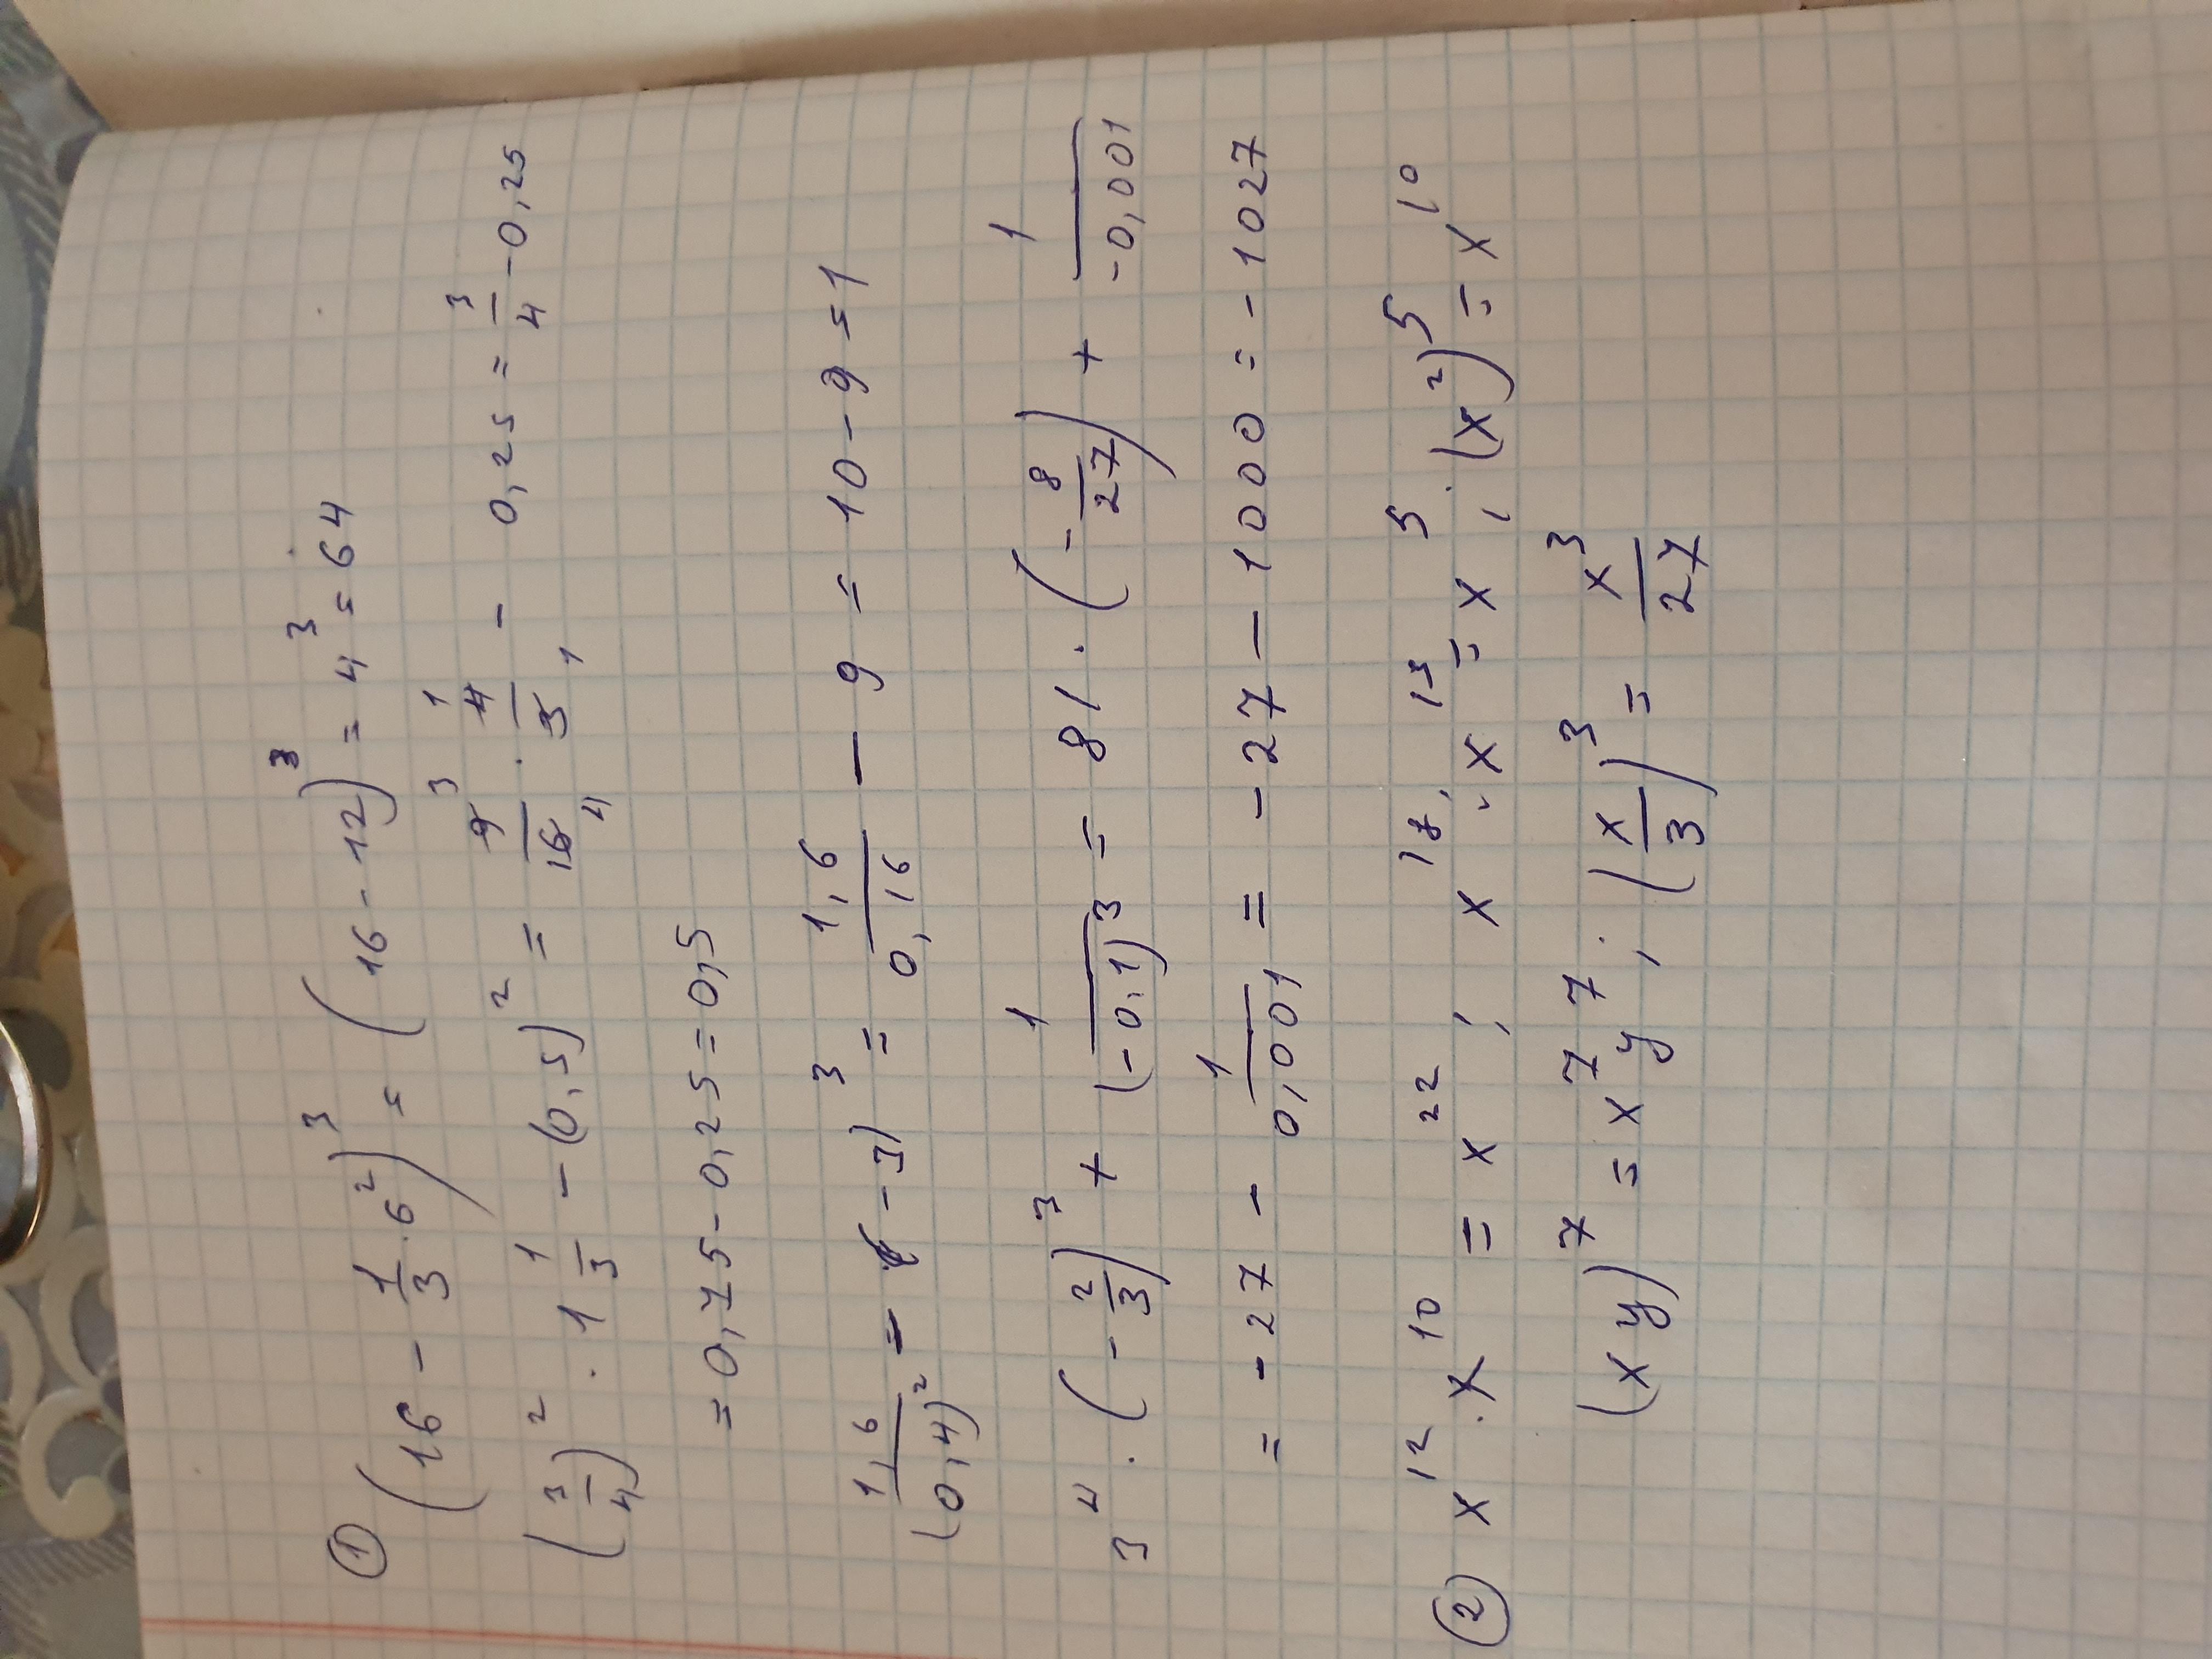 ① (16 - 1/3 · 6²)³ = (16 - 12)³ = 4³ = 64
(3/4)² · 1 1/3 - (0,5)² = 9/16 · 4/3 - 0,25 = 3/4 - 0,25
= 0,75 - 0,25 = 0,5
1,6/(0,4)² - (-3)³ = 1,6/0,16 - 9 = 10 - 9 = 1
3⁴ · (-2/3)³ + 1/(-0,1)³ = 81 · (-8/27) + 1/-0,001
= -27 - 1/0,001 = -27 - 1000 = -1027
② x¹² · x¹⁰ = x²² ; x¹⁸ : x¹³ = x⁵ ; (x²)⁵ = x¹⁰
(xy)⁷ = x⁷y⁷ ; (x/3)³ = x³/27